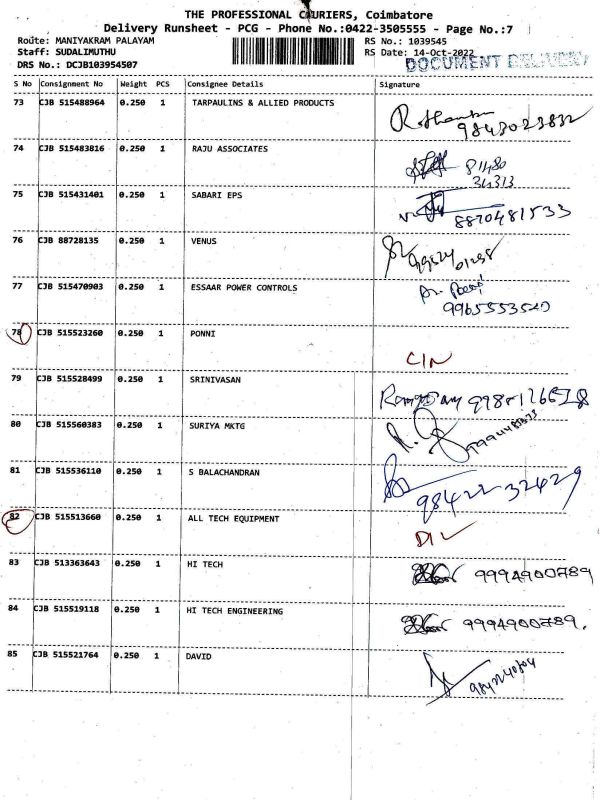 THE PROFESSIONAL COURIERS, Coimbatore
Delivery Runsheet - PCG - Phone No.:0422-3505555 - Page No.:7
Route: MANIYAKRAM PALAYAM RS No.: 1039545
Staff: SUDALIMUTHU RS Date: 14-Oct-2022
DOCUMENT DELIVERY
DRS No.: DCJB103954507
S No Consignment No Weight PCS Consignee Details Signature
73 CJB 515488964 0.250 1 TARPAULINS & ALLIED PRODUCTS
9843023832
74 CJB 515483816 0.250 1 RAJU ASSOCIATES
81480
34313
75 CJB 515431401 0.250 1 SABARI EPS
8870481533
76 CJB 88728135 0.250 1 VENUS
77 CJB 515470903 0.250 1 ESSAAR POWER CONTROLS
9965553520
78 CJB 515523260 0.250 1 PONNI
CIN
79 CJB 515528499 0.250 1 SRINIVASAN
80 CJB 515560383 0.250 1 SURIYA MKTG
81 CJB 515536110 0.250 1 S BALACHANDRAN
98422-32429
82 CJB 515513660 0.250 1 ALL TECH EQUIPMENT
83 CJB 513363643 0.250 1 HI TECH
9994900789
84 CJB 515519118 0.250 1 HI TECH ENGINEERING
9994900789.
85 CJB 515521764 0.250 1 DAVID